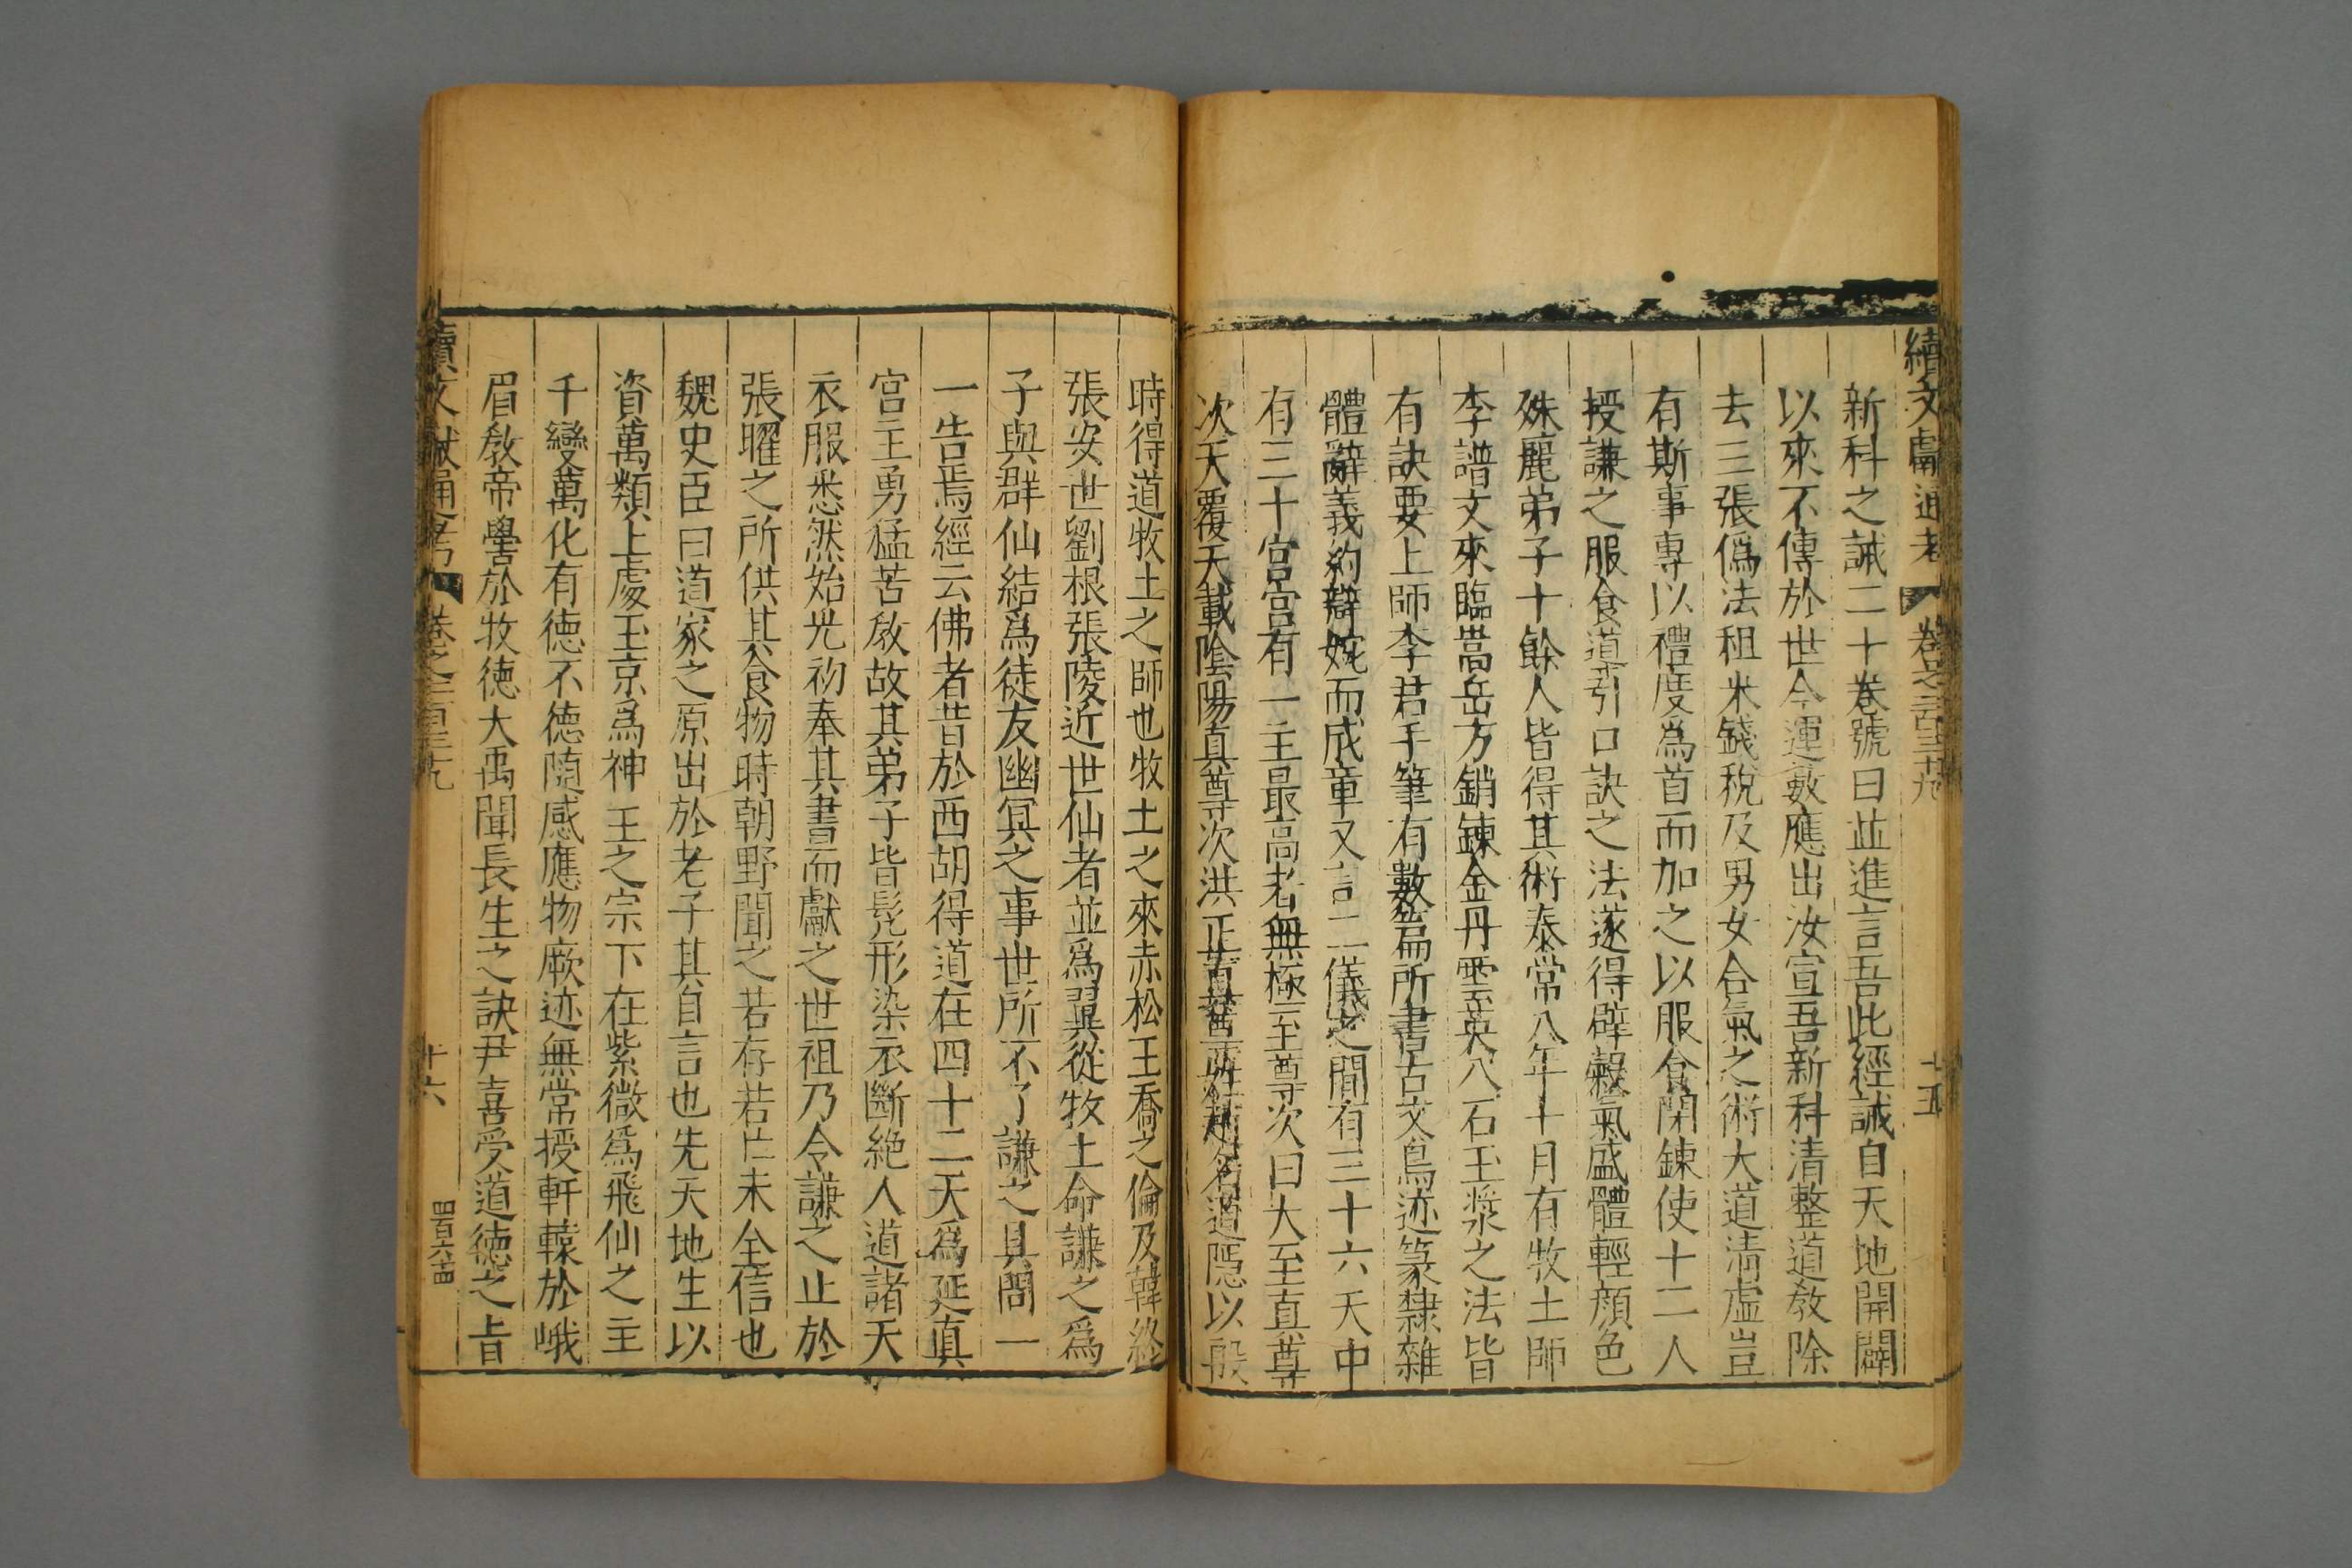 續文獻通考 卷之二百三十九 十五
新科之誡二十卷號曰並進言吾此經誡自天地開闢
以來不傳於世今運數應出汝宣吾新科清整道教除
去三張僞法租米錢稅及男女合氣之術大道清虛豈
有斯事專以禮度爲首而加之以服食閑鍊使十二人
授謙之服食道引口訣之法遂得辟穀氣盛體輕顔色
殊麗弟子十餘人皆得其術泰常八年十月有牧土師
李譜文來臨嵩岳方銷鍊金丹雲英八石玉漿之法皆
有訣要上師李君手筆有數篇所書古文鳥迹篆隸雜
體辭義約辯婉而成章又言二儀之間有三十六天中
有三十宮宮有一主最高者無極至尊次曰大至真尊
次天覆天載陰陽真尊次洪正尊 趙名道隱以殷
時得道牧土之師也牧土之來赤松王喬之倫及韓終
張安世劉根張陵近世仙者並爲翼從牧土命謙之爲
子與群仙結爲徒友幽冥之事世所不了謙之具問一
一告焉經云佛者昔於西胡得道在四十二天爲延真
宮主勇猛苦教故其弟子皆髡形染衣斷絕人道諸天
衣服悉然始光初奉其書而獻之世祖乃令謙之止於
張曜之所供其食物時朝野聞之若存若亡未全信也
魏史臣曰道家之原出於老子其自言也先天地生以
資萬類上處玉京爲神王之宗下在紫微爲飛仙之主
千變萬化有德不德隨感應物厥迹無常授軒轅於峨
眉教帝嚳於牧德大禹聞長生之訣尹喜受道德之旨
續文獻通考 卷之二百三十九 十六 四百六十四